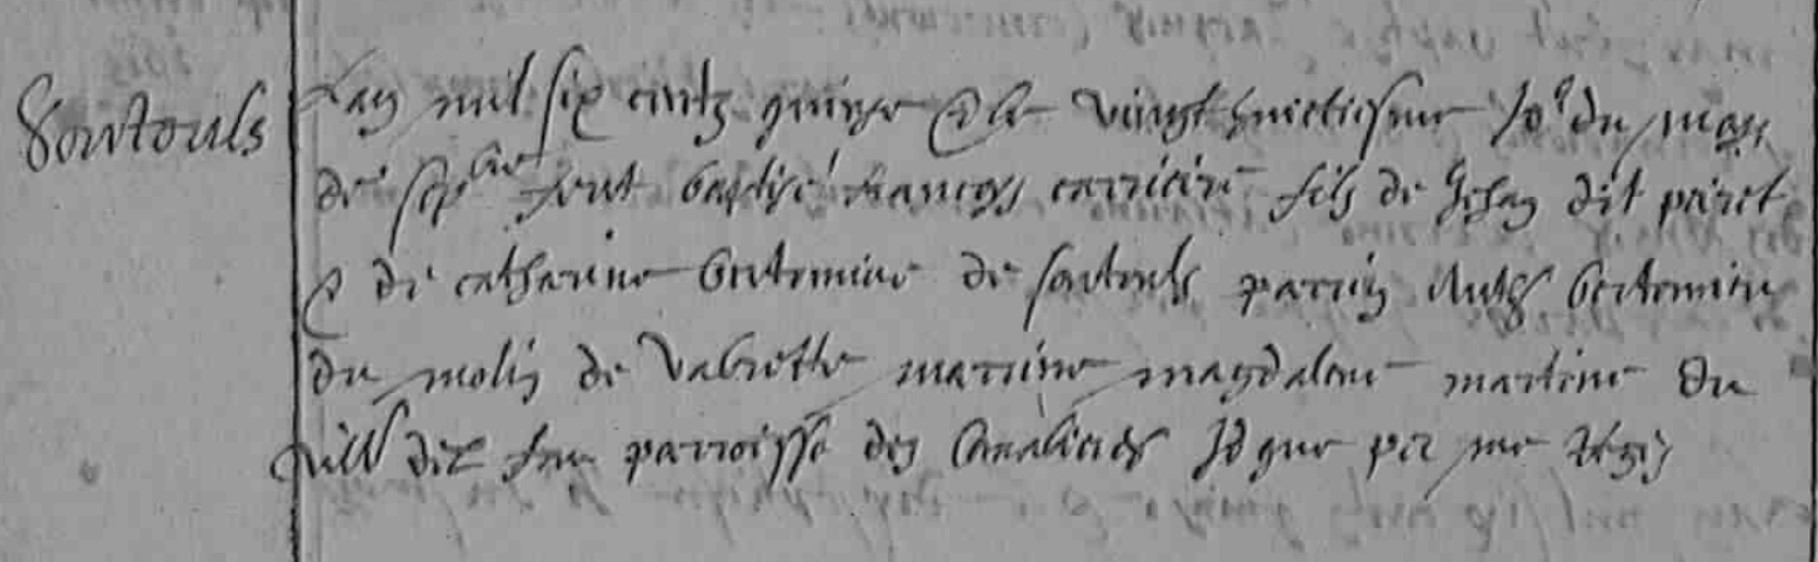 Soutouls
Lan mil six centz quinze & le vingt huictiesme Jor du moys
de sepbre feut baptisé francoys carriere fils de Jehan dit
& de catharine bertomieue de soutouls parrin bertomieu
du molin de Valrette marrine magdalene martine du
dit parroisse des Id que per me